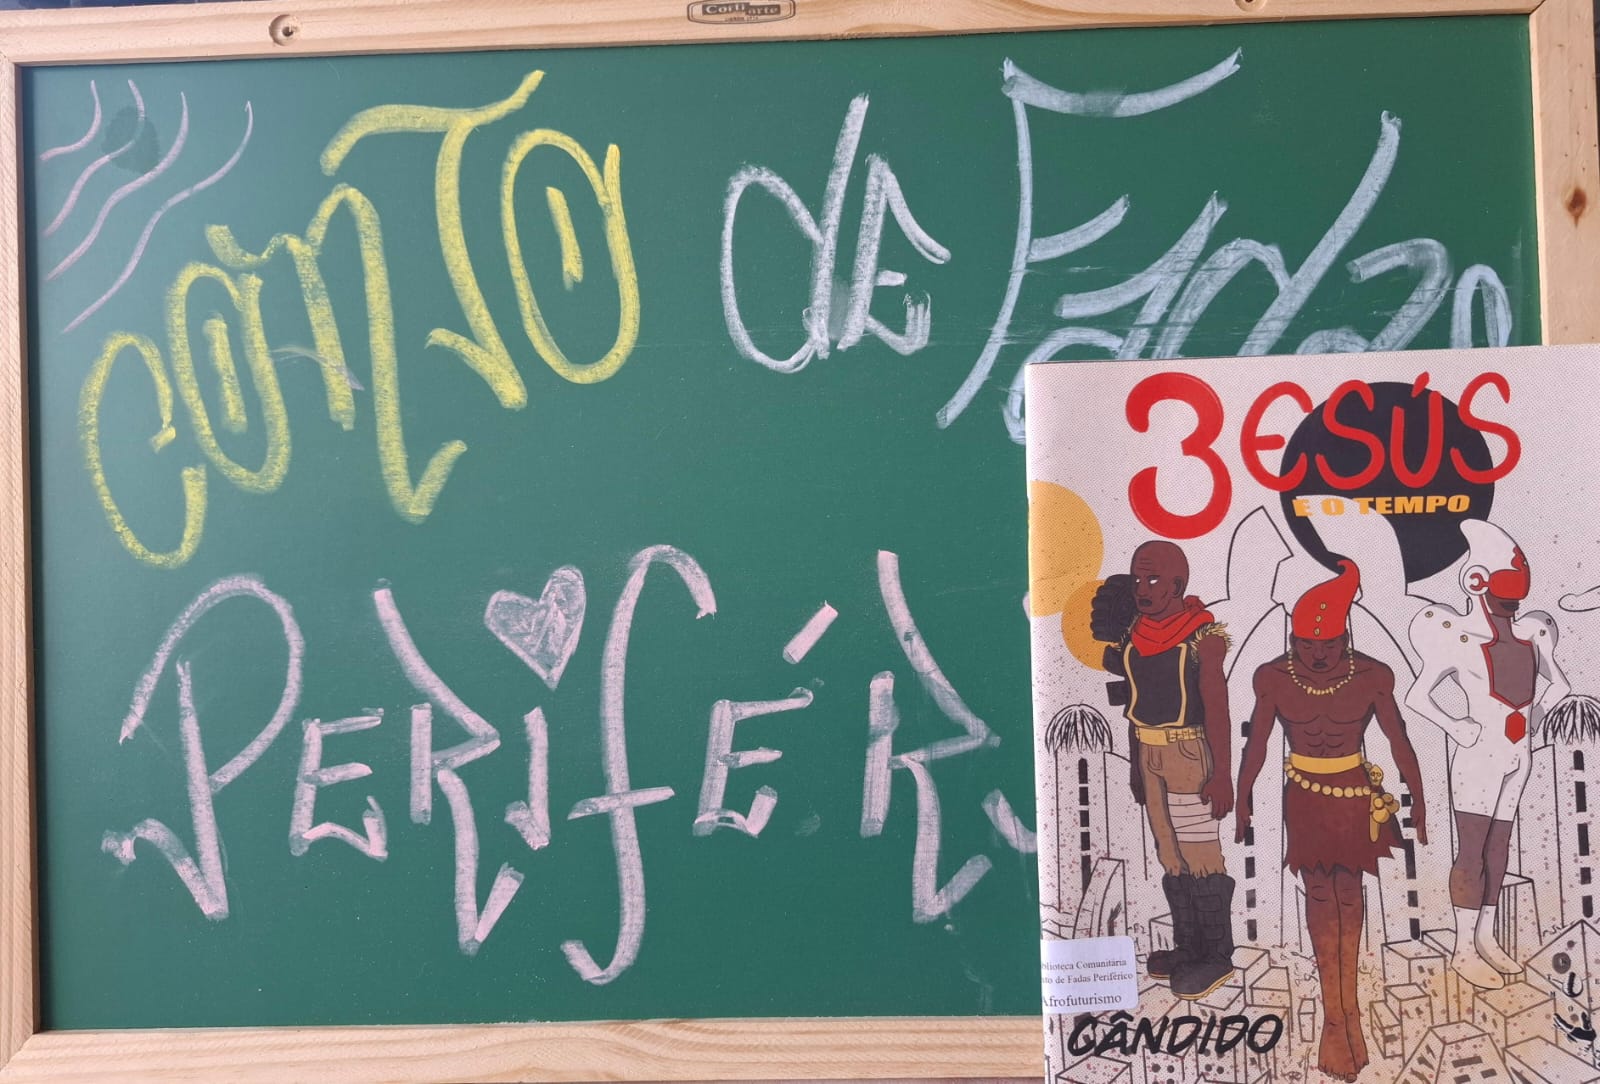 Corti arte
CONTO dE Fadas
PERifÉR
3ESÚS
E O TEMPO
blioteca Comunitária
nto de Fadas Periférico
Afrofuturismo
CÂNDIDO